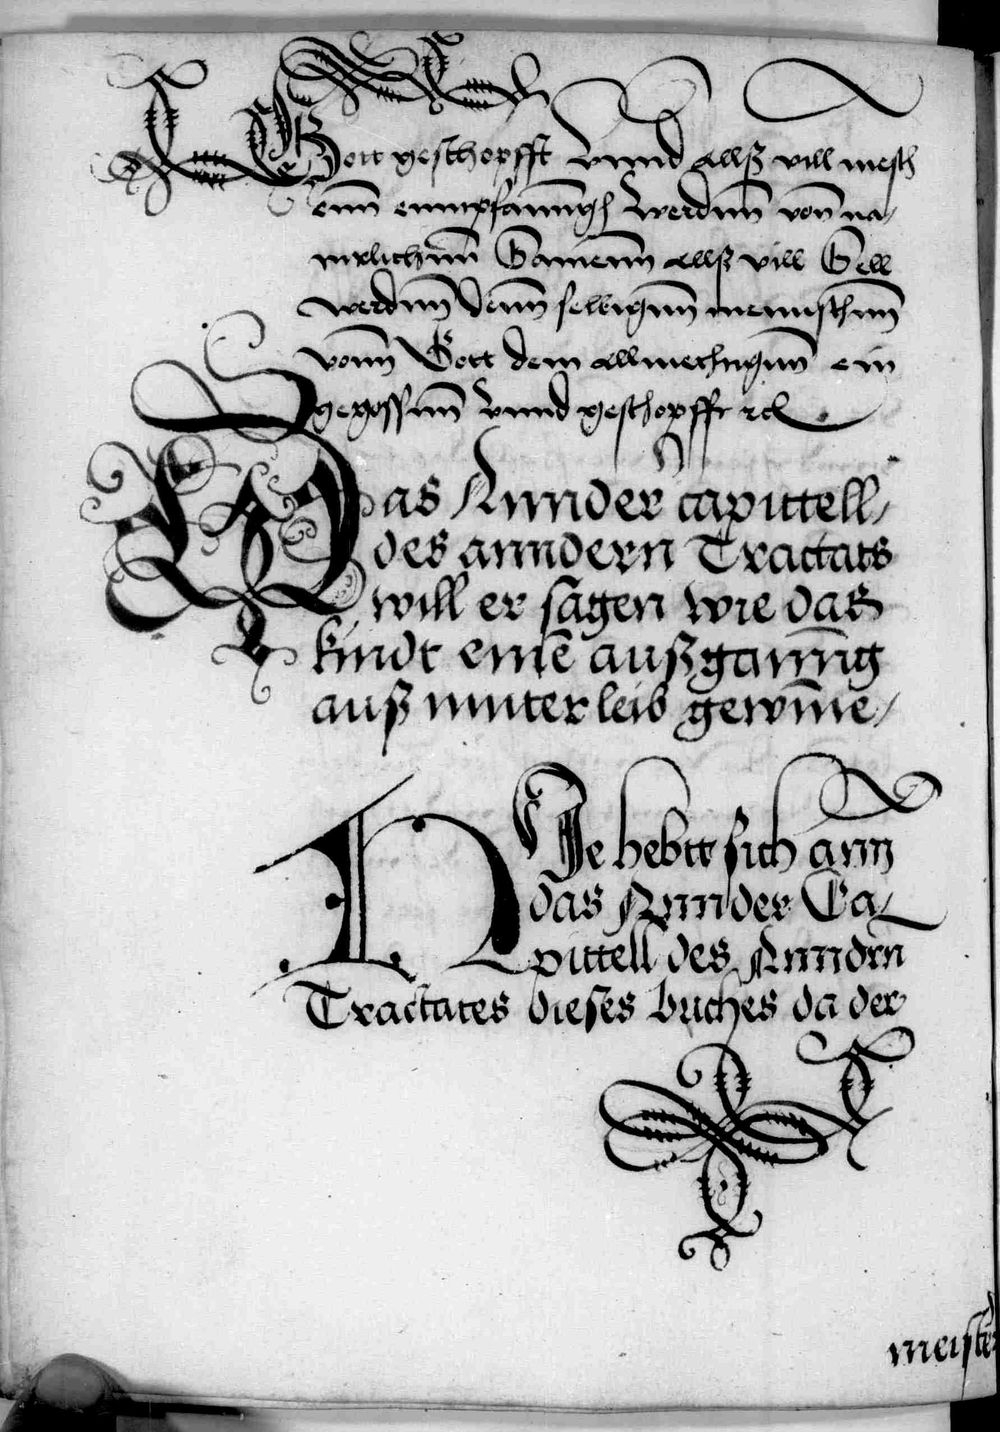 Gott geschopfft vnnd allß vill mesch
enn emmpfanngen werdenn von na„
turlichenn Samenn allß vill Sell
werdenn denn selbigenn mennschenn
vonn Gott dem allmechtigenn ein
gegossenn vnnd geschopfft rc
Das Annder capittell„
des anndern Tractats
will er sagen wie das
kindt eine außganng
auß mutter leib gewine„
Hie hebtt sich ann
das Annder Ca„
pittell des Anndrn
Tractates dieses buches da der
meister